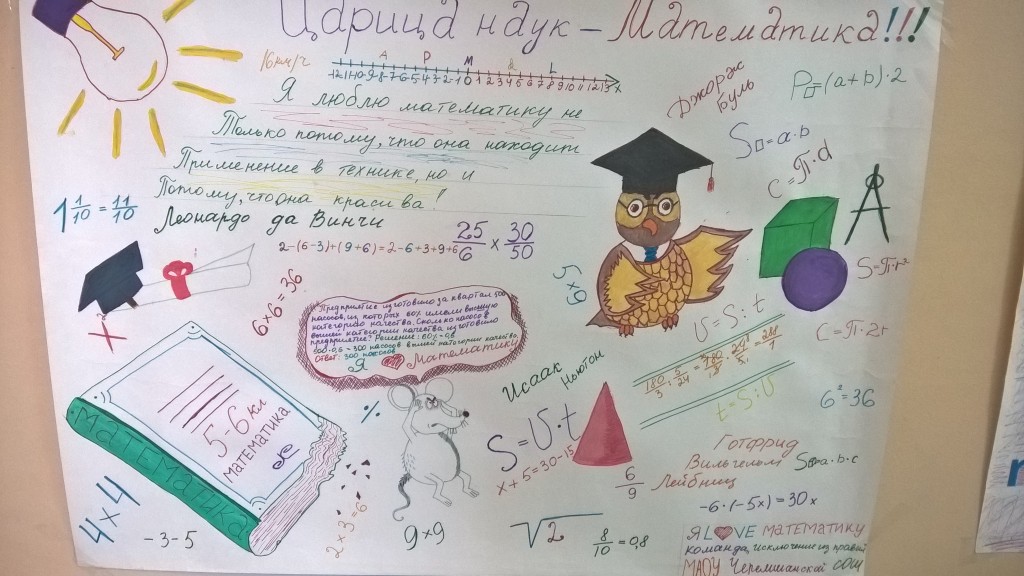 Царица наук – Математика!!!
16км/ч
A P M k L
-12-11-10-9-8-7-6-5-4-3-2-1 0 1 2 3 4 5 6 7 8 9 10 11 12 13 x
Я люблю математику не
Только потому, что она находит
Применение в технике, но и
Потому, что она красива!
Леонардо да Винчи
Джорж
Буль
P▭=(a+b)·2
S▭=a·b
C=П·d
1 1/10 = 11/10
2-(6-3)+(9+6)=2-6+3+9+6
25/6 x 30/50
6×6=36
5×9
S=П·r²
C=П·2r
Предприятие изготовило за квартал 500
насосов, из которых 60% имели высшую
категорию качества. Сколько насосов
высшей категории качества изготовило
предприятие? Решение: 60%=0,6
500·0,6=300 насосов высшей категории качества
Ответ: 300 насосов
Я ❤ Математику
Исаак
Ньютон
V=S:t
t=S:V
6²=36
5-6 кл
математика
Математика
%
S=V·t
x+5=30-15
6/9
Готфрид
Вильгельм
Лейбниц
S=a·b·c
-6·(-5x)=30x
4×4
-3-5
2×3=6
9×9
√2
8/10=0,8
Я L❤VE математику
команда, исключение из правил
МАОУ Черемшанской СОШ